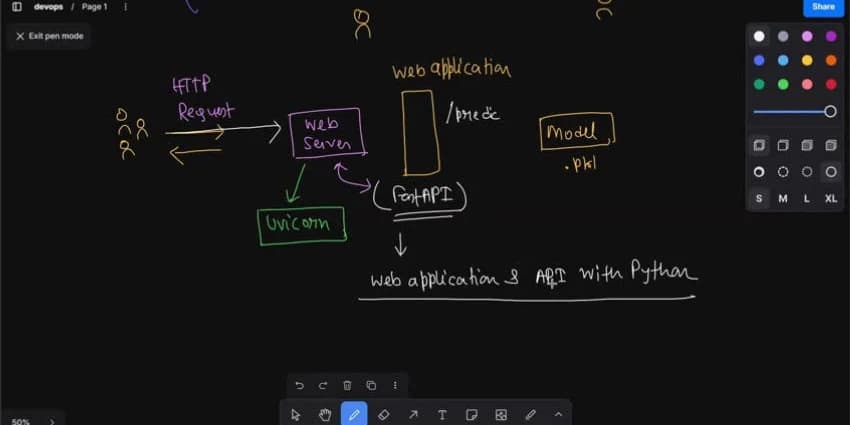 devops / Page 1
Share
Exit pen mode
HTTP
Request
Web application
Web
Server
/predic
Model
.pkl
(FastAPI)
Uvicorn
Web application & API with Python
S M L XL
T
50%